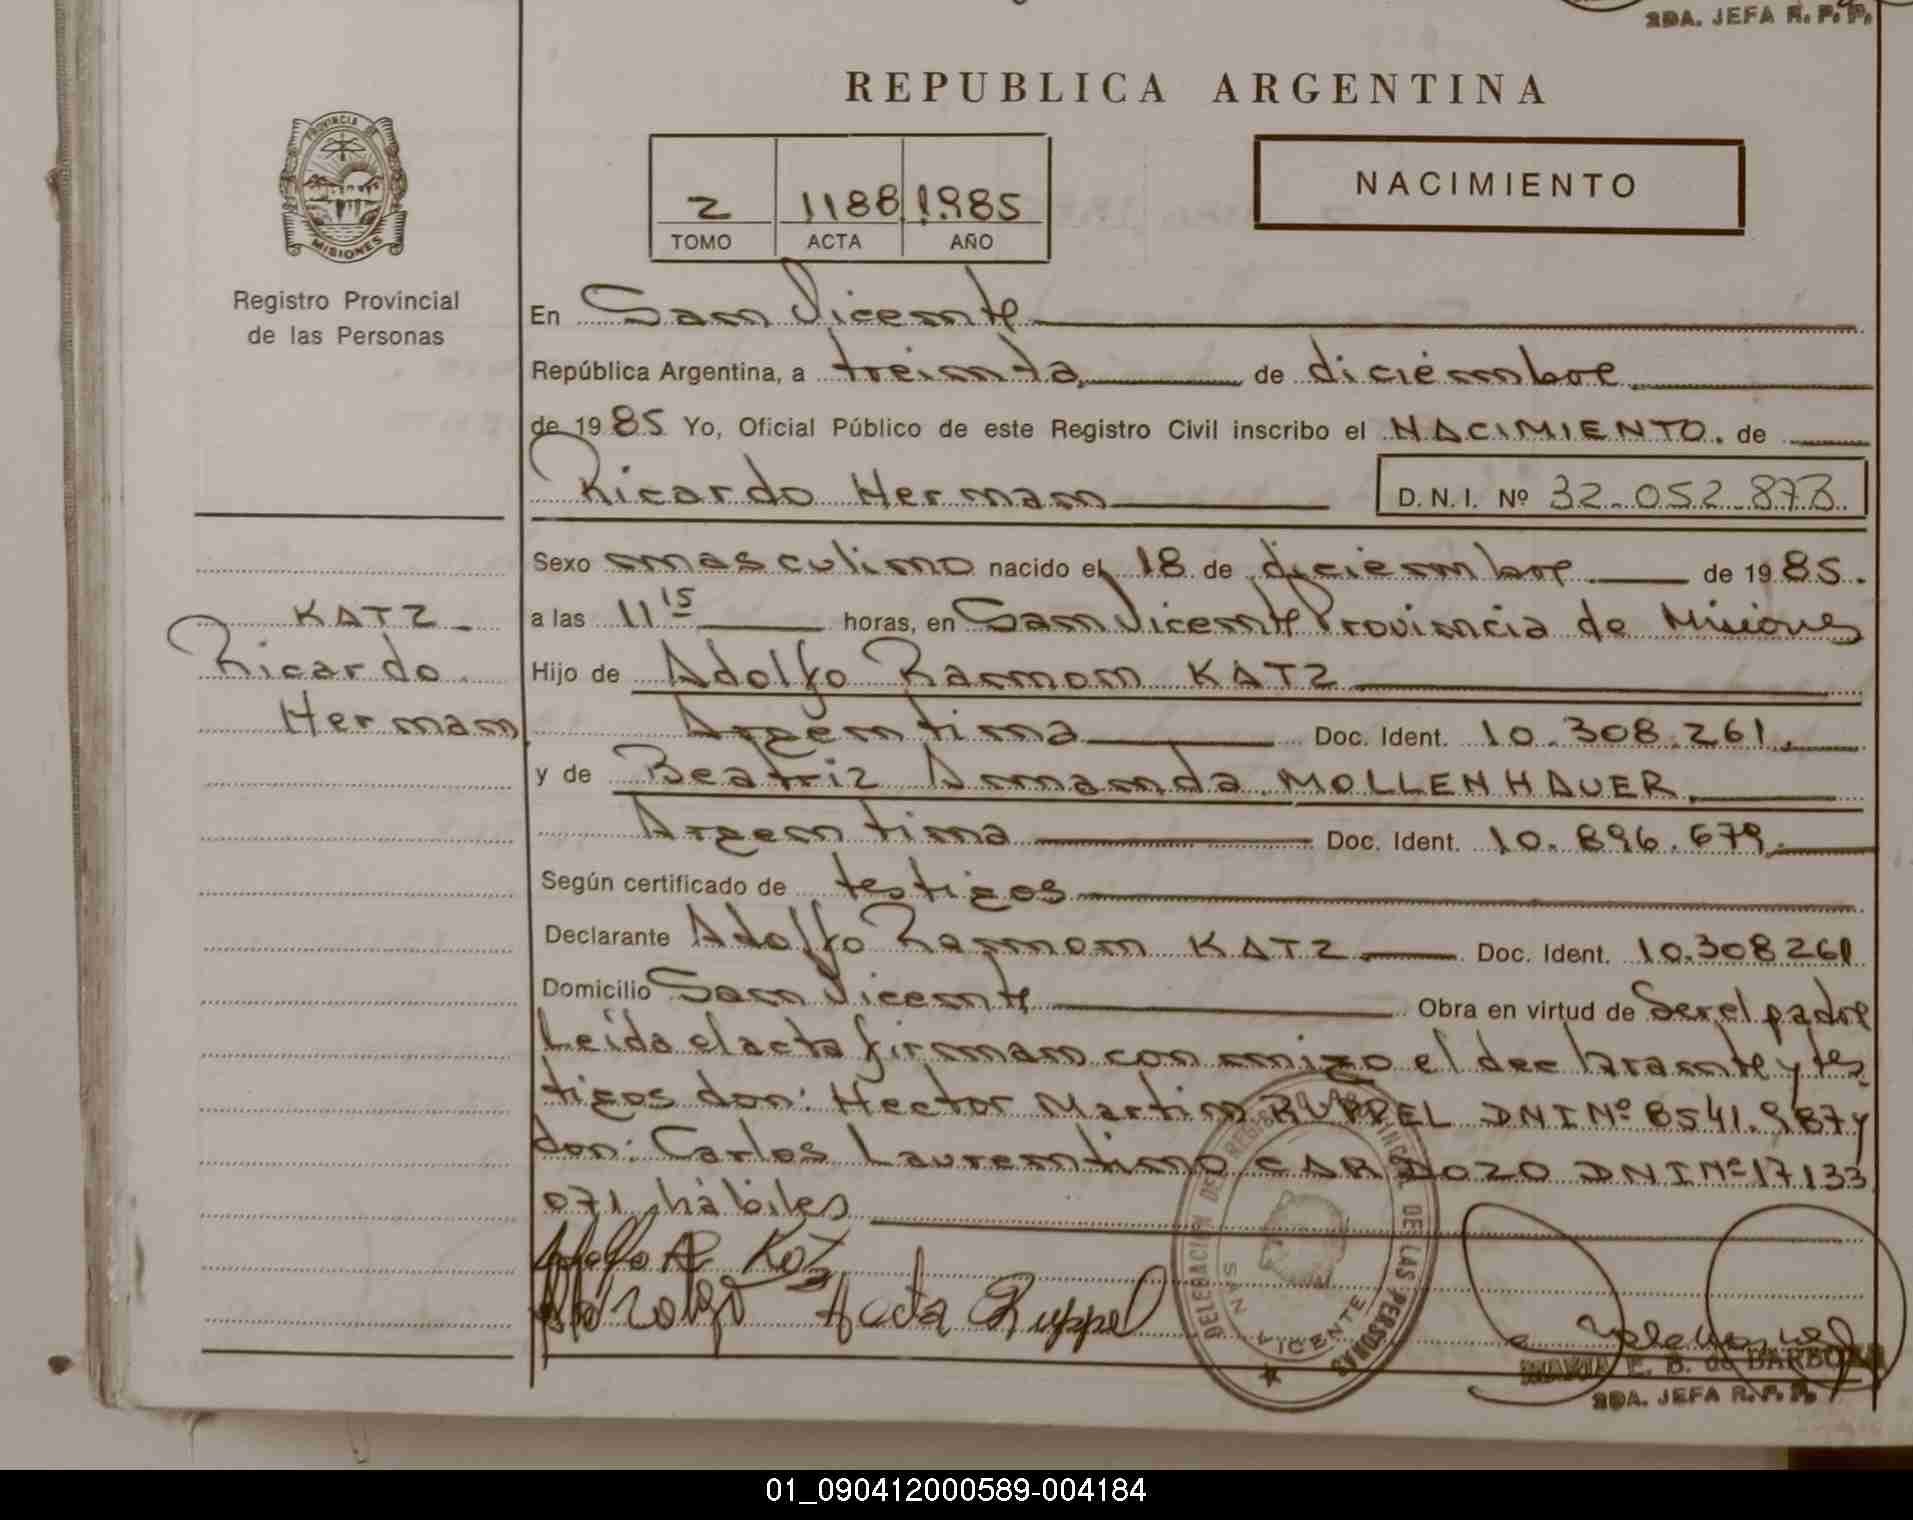 2DA. JEFA R. P. P.
REPUBLICA ARGENTINA
PROVINCIA DE
MISIONES
Registro Provincial
de las Personas
2 1188 1985
TOMO ACTA AÑO
NACIMIENTO
En San Vicente
República Argentina, a treinta de diciembre
de 1985 Yo, Oficial Público de este Registro Civil inscribo el NACIMIENTO. de
Ricardo Herman D.N.I. Nº 32.052.873
Sexo masculino nacido el 18 de diciembre de 1985.
KATZ
Ricardo
Herman
a las 11 15 horas, en San Vicente Provincia de Misiones
Hijo de Adolfo Ramon KATZ
Argentina Doc. Ident. 10.308.261.
y de Beatriz Amanda MOLLENHAUER.
Argentina Doc. Ident. 10.896.679.
Según certificado de testigos
Declarante Adolfo Ramon KATZ Doc. Ident. 10.308261
Domicilio San Vicente Obra en virtud de Ser el padre
Leída el acta firman con migo el declarante y tes
tigos don: Hector Martin RUPPEL DNI Nº 8541.987 y
don: Carlos Laurentino CARDOZO DNI Nº 17133
071 hábiles
Adolfo R Katz
Ruppel
DELEGACION DEL REGISTRO PROVINCIAL DE LAS PERSONAS
SAN VICENTE
E. B. de BARBOZA
2DA. JEFA R. P. P.
01_090412000589-004184